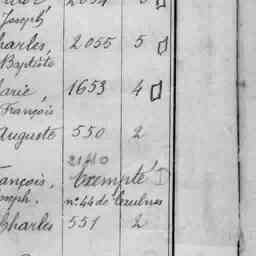 Joseph
Charles, 2055 5
Baptiste
Marie, 1653 4
François
Auguste 550 2
2140
François, Exempté
Joseph. n° 44 de
Charles 551 2